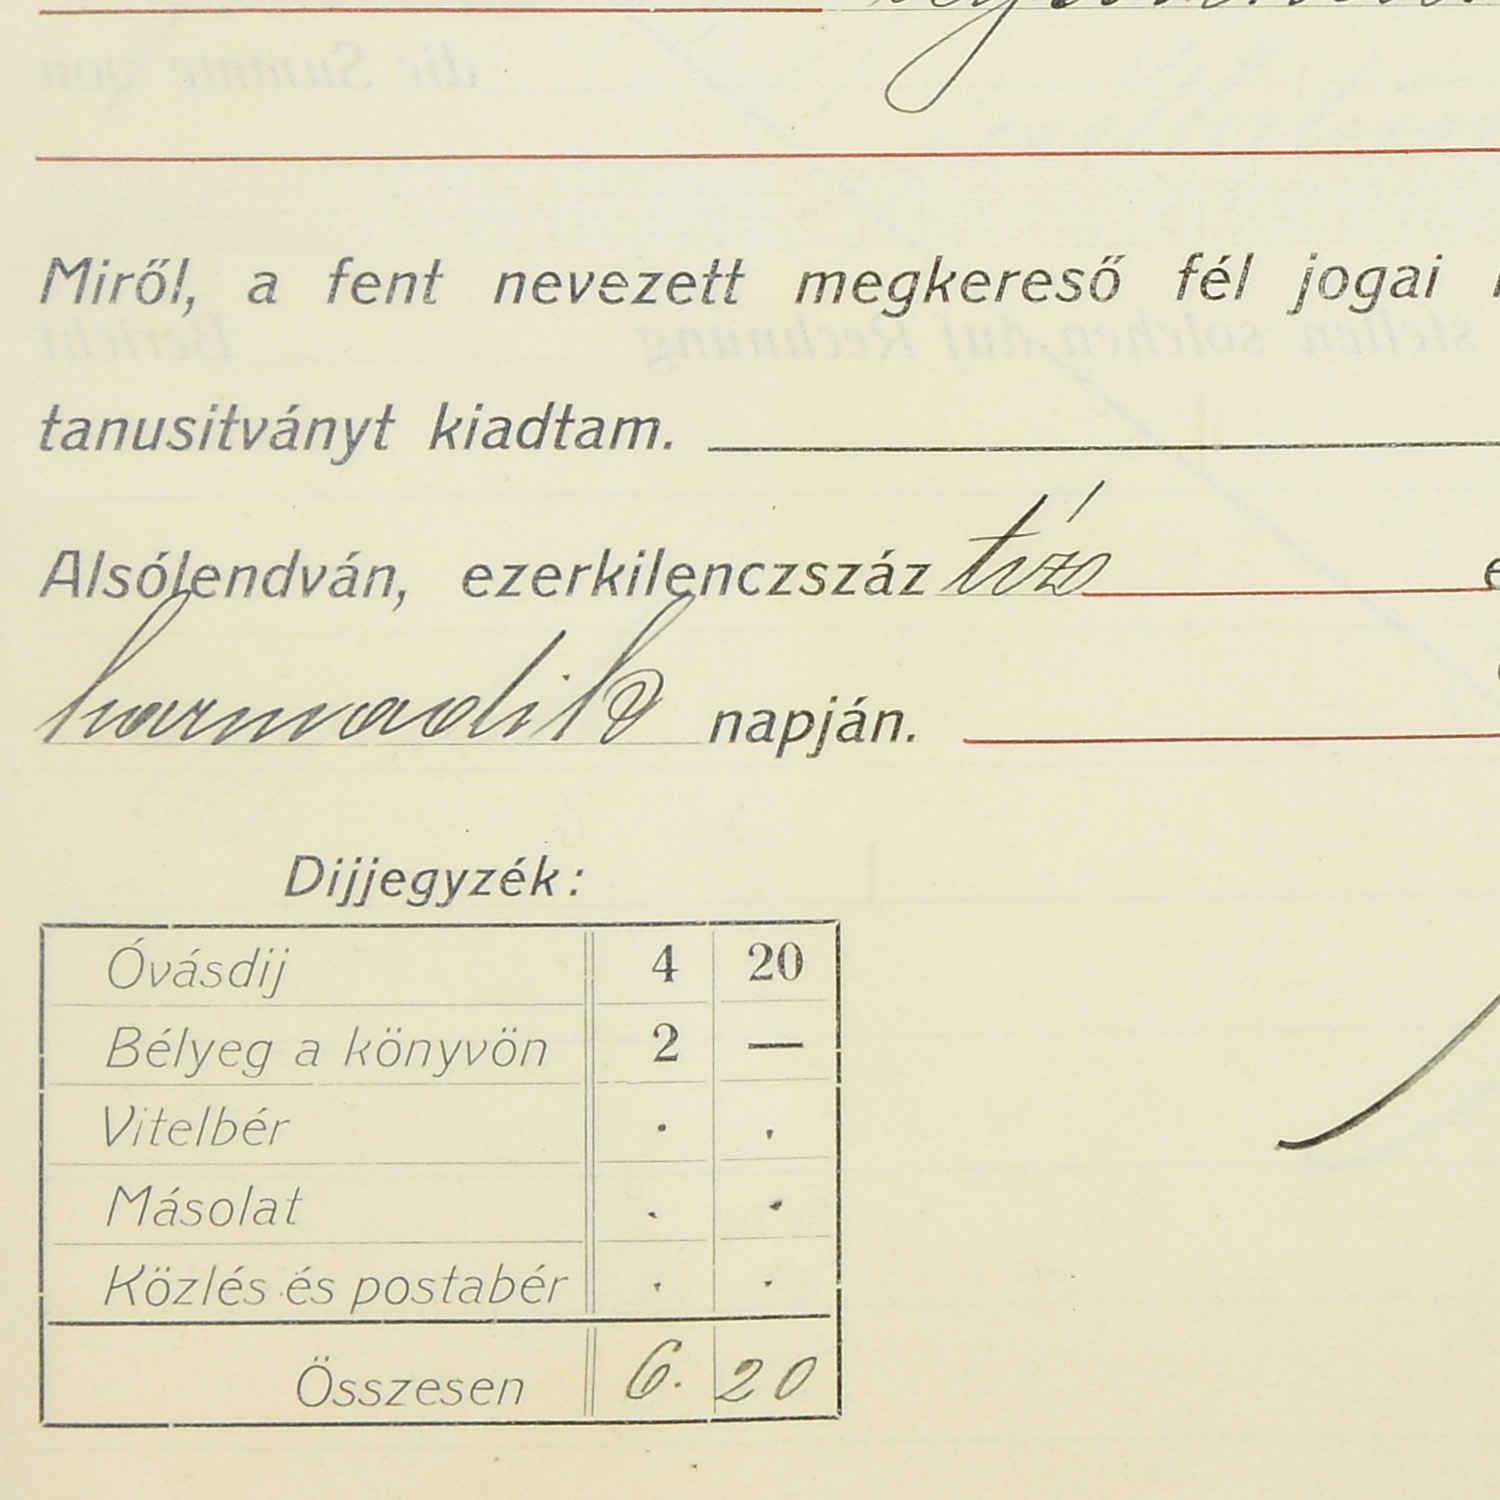 Miről, a fent nevezett megkereső fél jogai
tanusitványt kiadtam.
Alsólendván, ezerkilenczszáz tíz
harmadik napján.
Dijjegyzék:
Óvásdij 4 20
Bélyeg a könyvön 2 —
Vitelbér . .
Másolat . .
Közlés és postabér . .
Összesen 6. 20